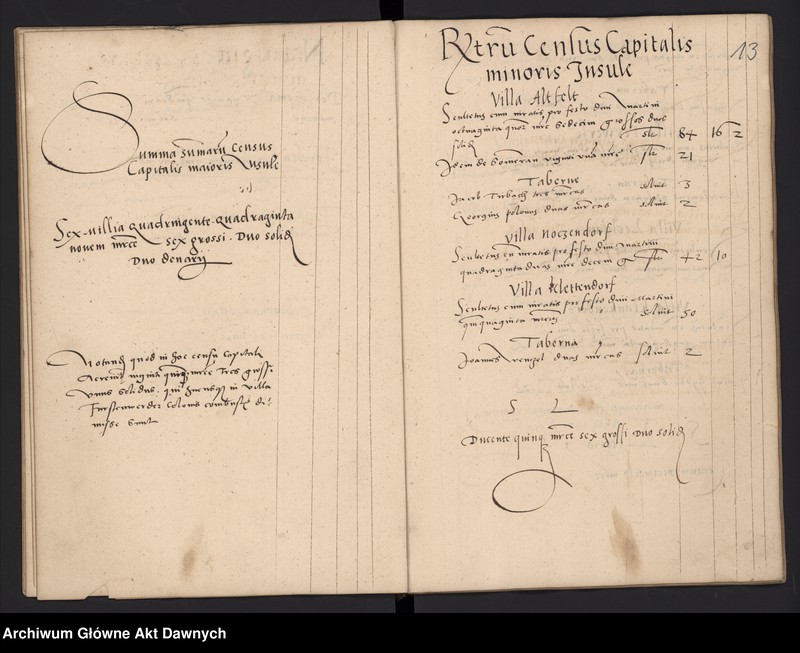 Summa sumarū Census
Capitalis maioris Insule
Sex millia quadringente quadraginta
novem mrce sex grossi Duo solidj
Duo denarij
Notandū quod in hoc censu capitali
mrce tres grossi
unus solidus
in villa
colonis
sunt
13
Rxtrū Census Capitalis
minoris Insule
Villa Altfelt
Scultetus cum iuratis pro festo divi Martini
octuaginta quatuor mrc sedecim grossos duos
solidos 84 16 2
Item de 21
Taberne
Jacob tres mrcas solvit 3
Georgius polonus duas mrcas solvit 2
Villa Noczendorf
Scultetus cū iuratis pro festo divi Martini
quadraginta duas mrc decem g 42 10
Villa Klettendorf
Scultetus cum iuratis pro festo divi Martini
quinquaginta mrcas solvit 50
Taberna
Joannes duas mrcas solvit 2
S L
Ducente quinq mrce sex grossi Duo solidj
Archiwum Główne Akt Dawnych